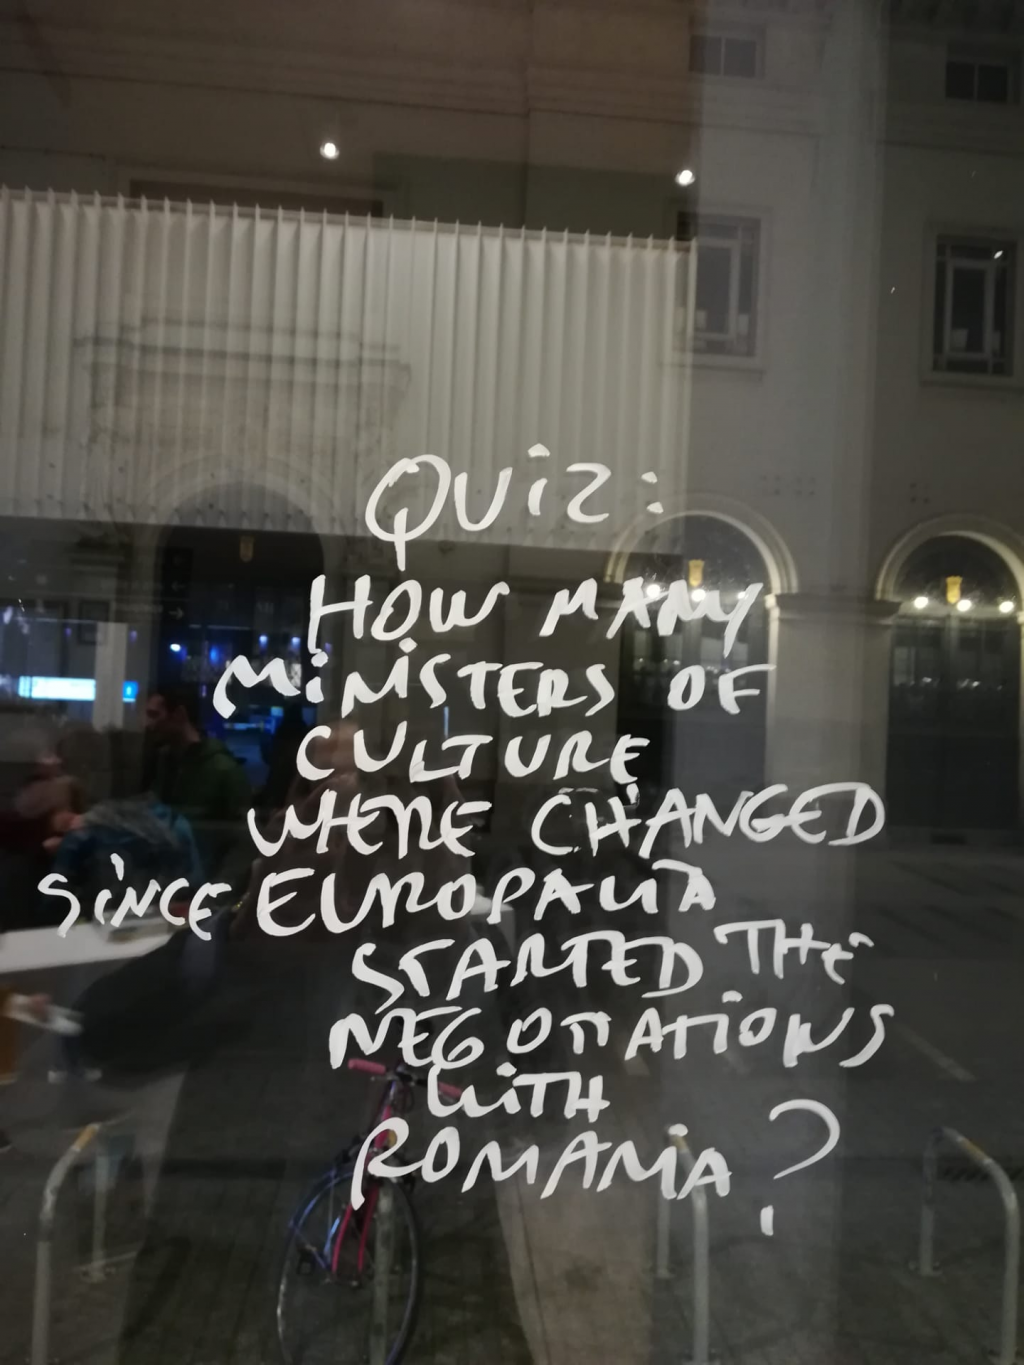 QUiZ:
HOW MANY
MiNiSTERS OF
CULTURE
WHERE CHANGED
SiNCE EUROPALIA
STARTED THE
NEGOTIATIONS
WiTH
ROMANIA?